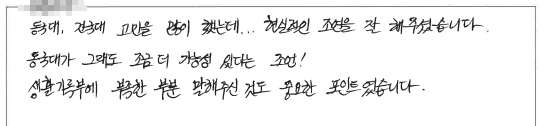 동국대, 건국대 고민을 많이 했는데... 현실적인 조언을 잘 해주셨습니다.
동국대가 그래도 조금 더 가능성 있다는 조언!
생활기록부에 부족한 부분 말해주신 것도 중요한 포인트였습니다.